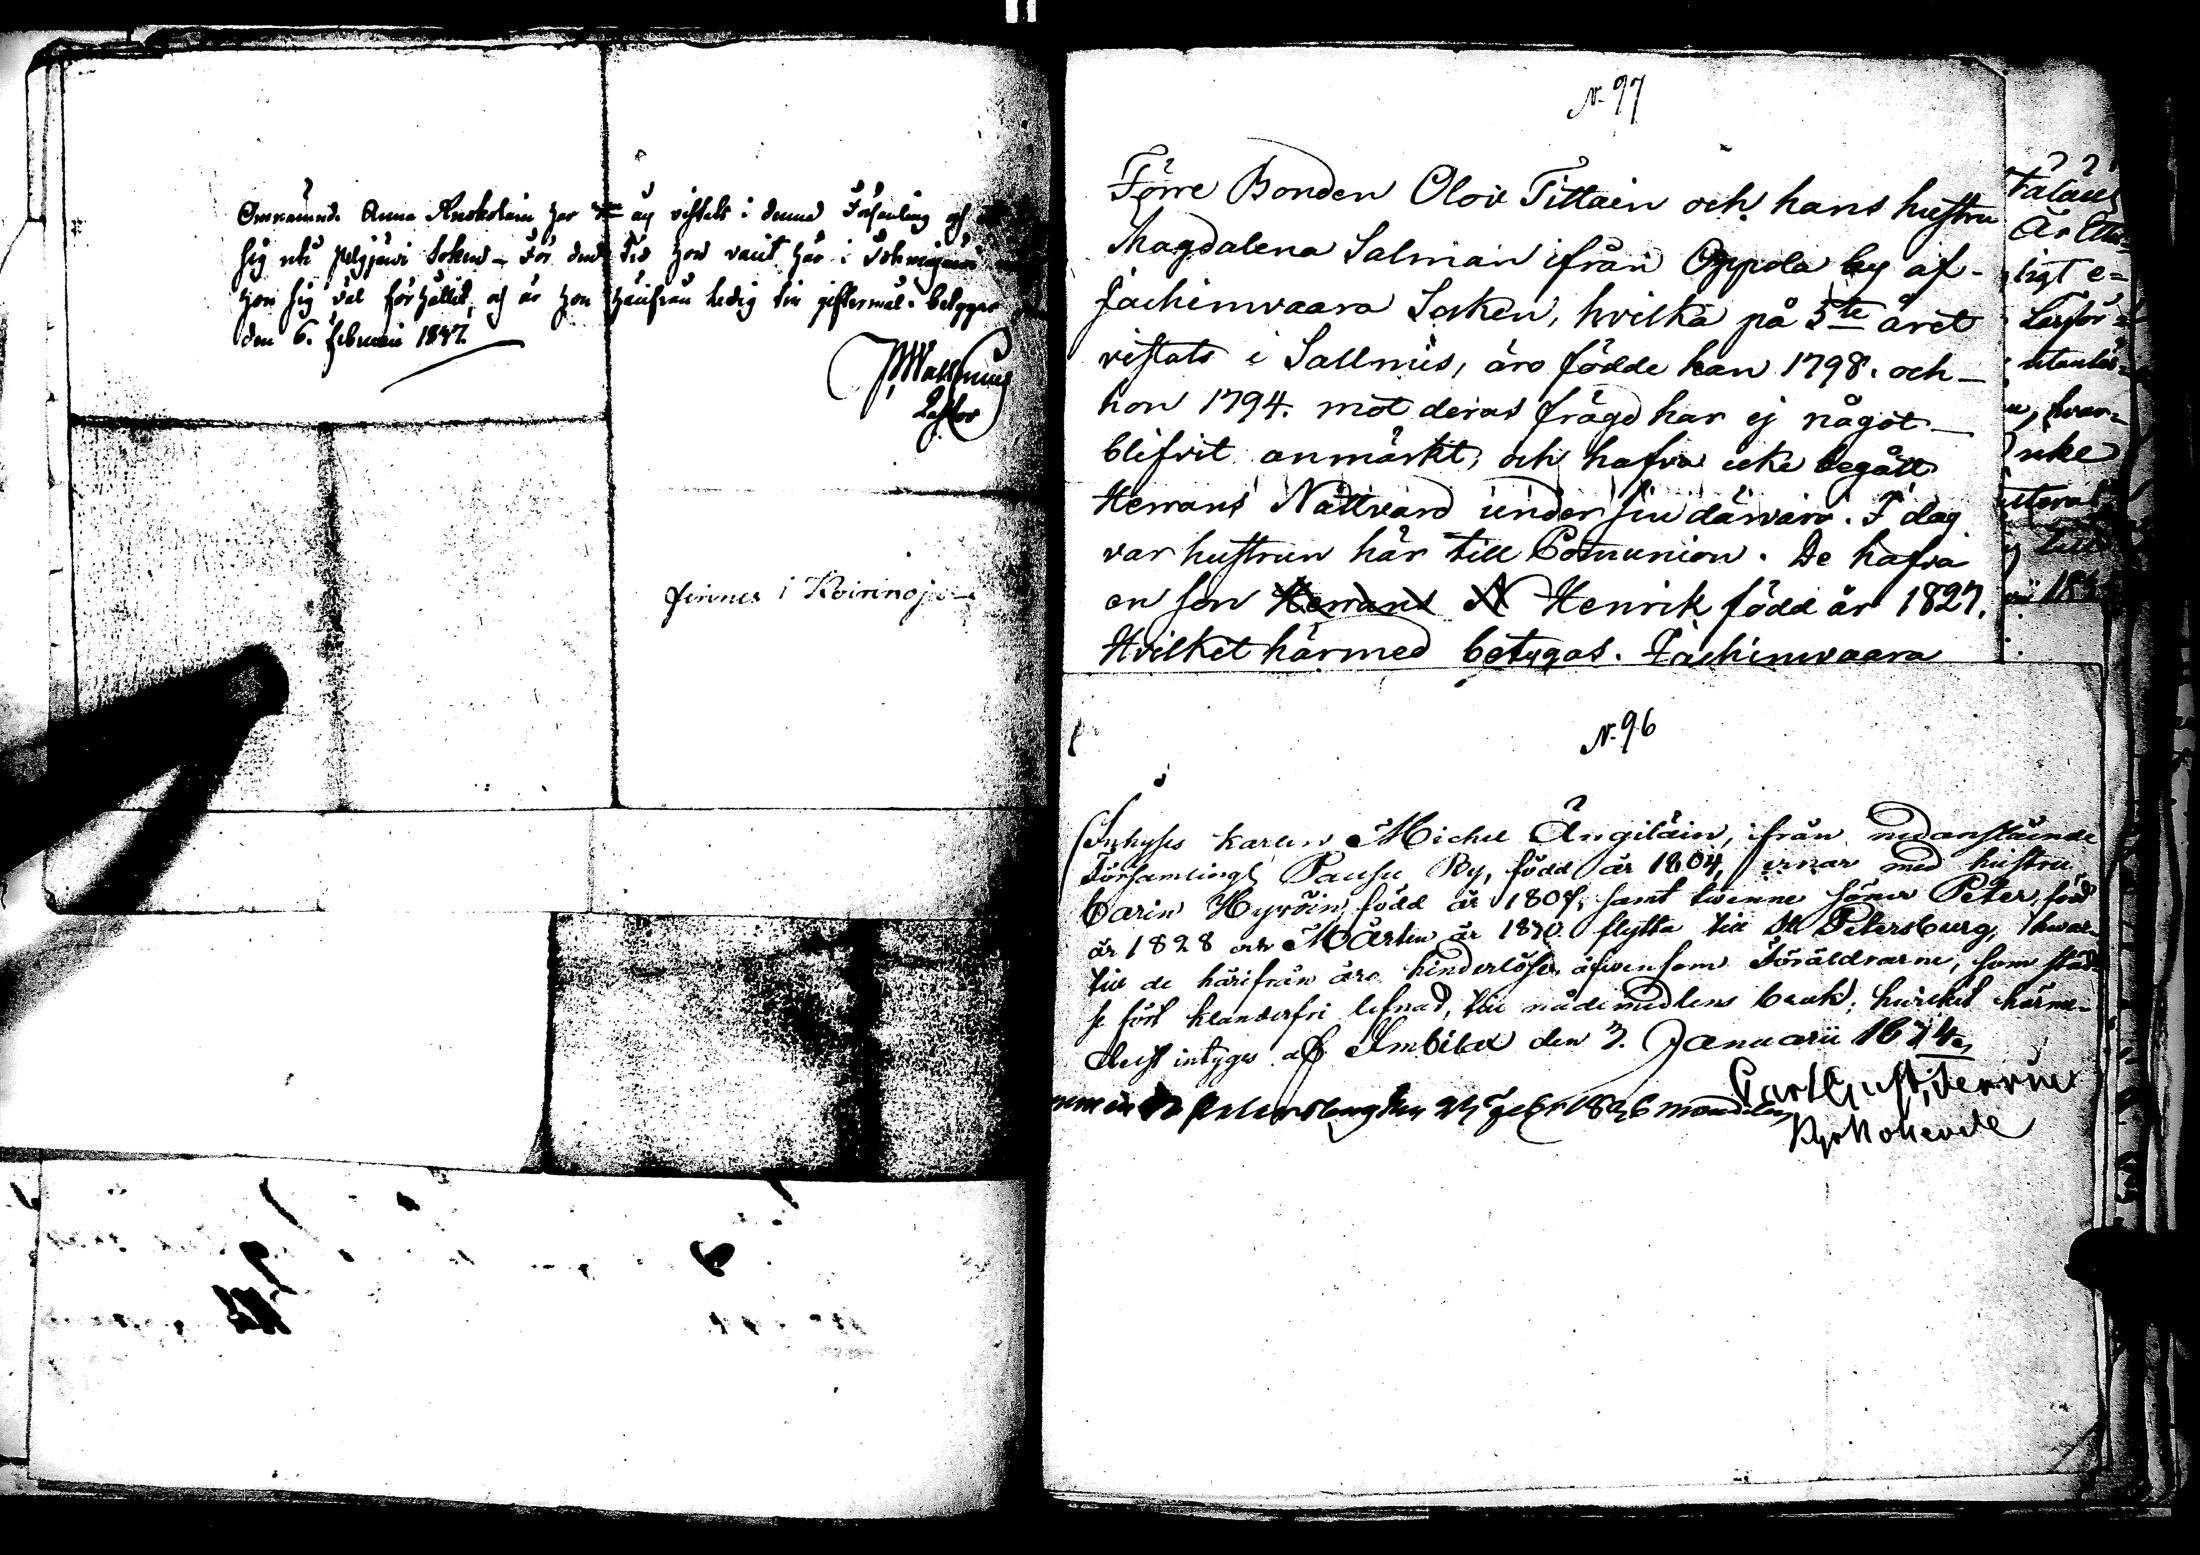 Omnämnde Anna Kuokolain har ej vistats i denna Församling och
sig uti Pelgjärvi Soken – För den Tid hon varit här i
hon sig väl förhållit, och är hon härifrån ledig till giftermål. betygar
den 6. Februari 1837.
Pastor
finnes i Koirinoja
N. 97
Förre Bonden Olov Tittain och hans hustru
Magdalena Salmian ifrån Oppola by af
Jachimvaara Socken, hvilka på 5te året
vistats i Sallmis, äro födde han 1798. och
hon 1794. mot deras frägd har ej något
blifvit anmärkt, och hafva icke begått
Herrans Nattvard under sin därvaro. I dag
var hustrun här till Comunion. De hafva
en son Herrans N Henrik född år 1827.
Hvilket härmed betygas. Jachimvaara
Är
ligt e=
hvar=
till
N. 96
Inhyses karlen Michel Ängiläin, ifrån nedanstående
Församlings Pausu By, född år 1804, ernar med hustru
Carin Hyvöin, född år 1807, samt tvenne söner Peter, född
år 1828 och Mårten år 1830 flytta till St Petersburg, hvar-
till de härifrån äro hinderlöse, äfvensom Föräldrarne, som städ-
se fört klanderfri lefnad, till nådemedlens bruk; hvilket härme-
delst intyges af Imbilax den 3. Januarii 1834.
Petersburg den 24 Febr 1836
Kyrkoherde